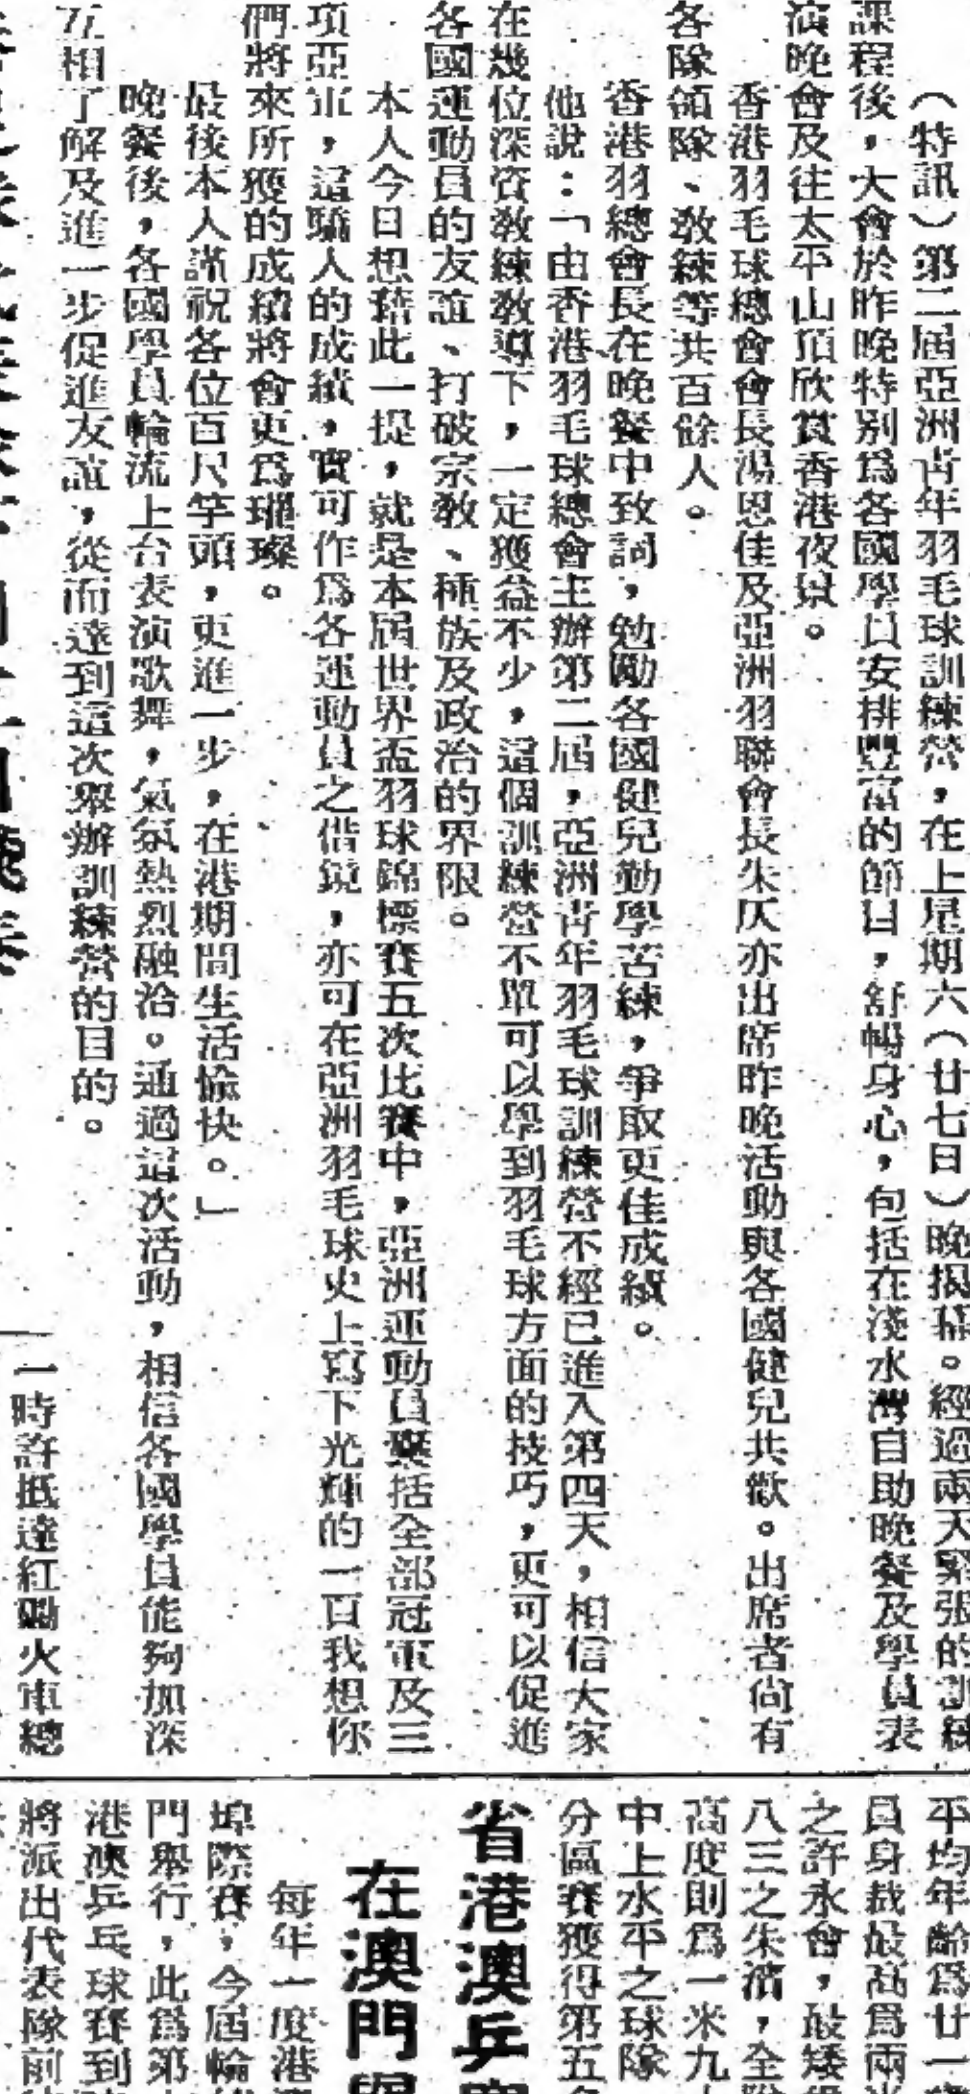 （特訊）第二屆亞洲青年羽毛球訓練營，在上星期六（廿七日）晚揭幕。經過兩天緊張的訓練
課程後，大會於昨晚特別爲各國學員安排豐富的節目，舒暢身心，包括在淺水灣自助晚餐及學員表
演晚會及往太平山頂欣賞香港夜景。
香港羽毛球總會會長湯恩佳及亞洲羽聯會長朱仄亦出席昨晚活動與各國健兒共歡。出席者尙有
各隊領隊、敎練等共百餘人。
香港羽總會長在晚餐中致詞，勉勵各國健兒勤學苦練，爭取更佳成績。
他說：「由香港羽毛球總會主辦第二屆，亞洲青年羽毛球訓練營不經已進入第四天，相信大家
在幾位深資敎練敎導下，一定獲益不少，這個訓練營不單可以學到羽毛球方面的技巧，更可以促進
各國運動員的友誼、打破宗敎、種族及政治的界限。
本人今日想藉此一提，就是本屆世界盃羽球錦標賽五次比賽中，亞洲運動員槪括全部冠軍及三
項亞軍，這驕人的成績，實可作爲各運動員之借鏡，亦可在亞洲羽毛球史上寫下光輝的一頁我想你
們將來所獲的成績將會更爲璀璨。
最後本人謹祝各位百尺竿頭，更進一步，在港期間生活愉快。」
晚餐後，各國學員輪流上台表演歌舞，氣氛熱烈融洽。通過這次活動，相信各國學員能夠加深
互相了解及進一步促進友誼，從而達到這次舉辦訓練營的目的。
一時許抵達紅磡火車總
平均年齡爲廿一
員身裁最高爲兩
之許永會，最矮
八三之朱濱，全
高度則爲一米九
中上水平之球隊
分區賽獲得第五
省港澳乒
在澳門
每年一度港
埠際賽，今屆輪
門舉行，此爲第
港澳乒乓球賽到
將派出代表隊前